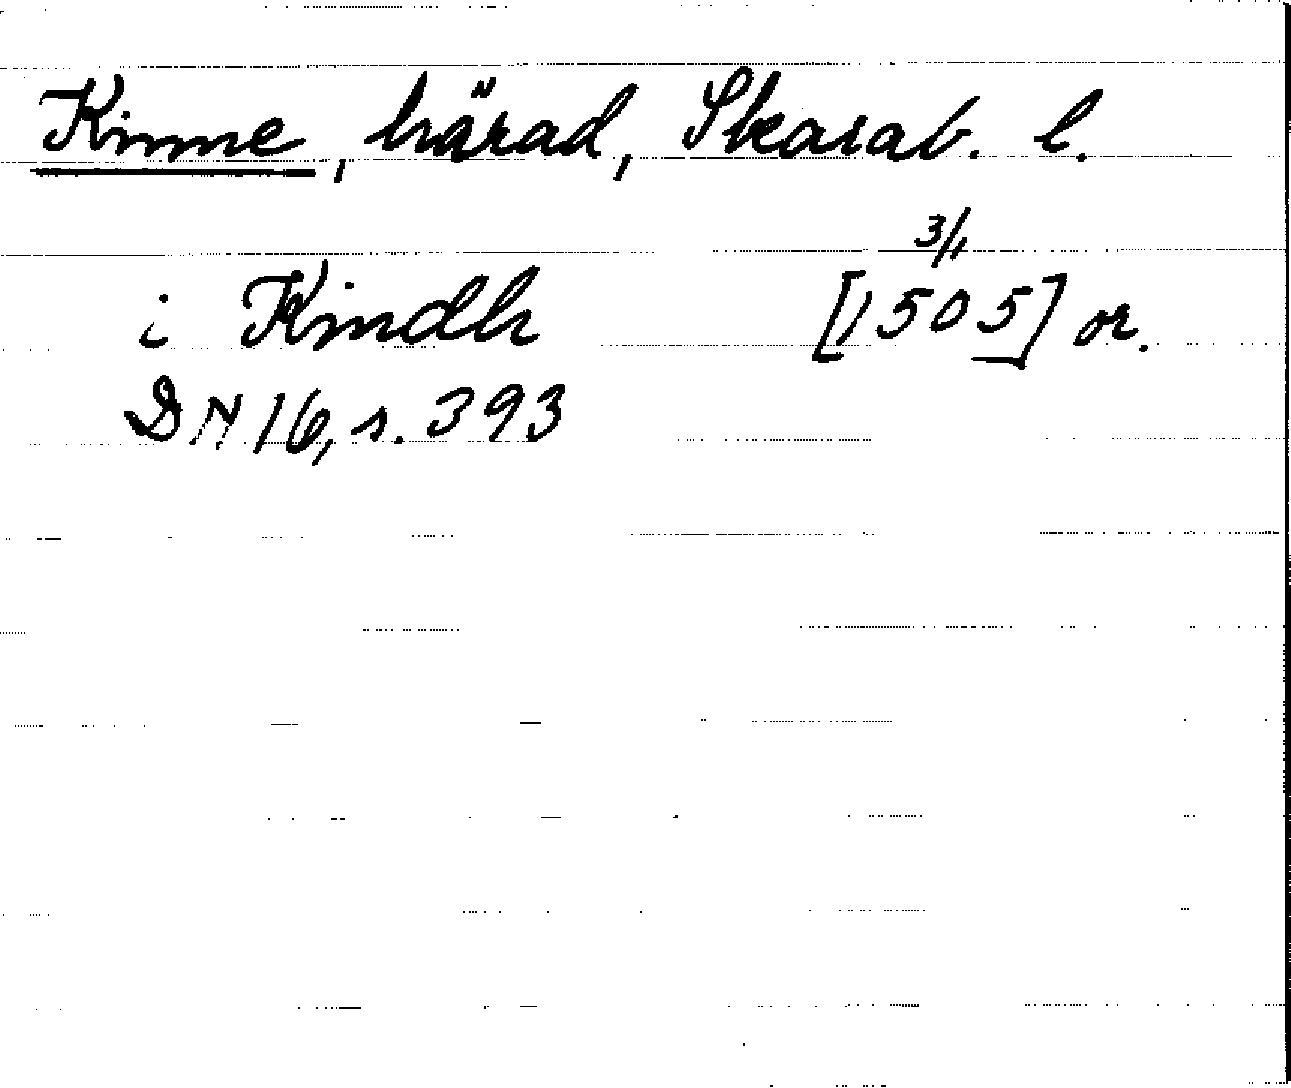 Kinne, härad, Skarab. l.
3/1
i Kindh [1505] or.
DN 16, s. 393